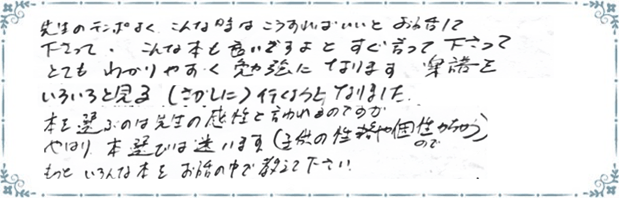 先生のテンポよく こんな時は こうすればいいと お話して
下さって、こんな本も良いですよと すぐ言って下さって
とても わかりやすく 勉強になります 楽譜を
いろいろと見る（さがしに）行くようになりました
本を選ぶのは先生の感性と言われるのですが
やはり 本選びは迷います（子供の性格や個性がちがうので）
もっと いろんな本を お話の中で教えて下さい